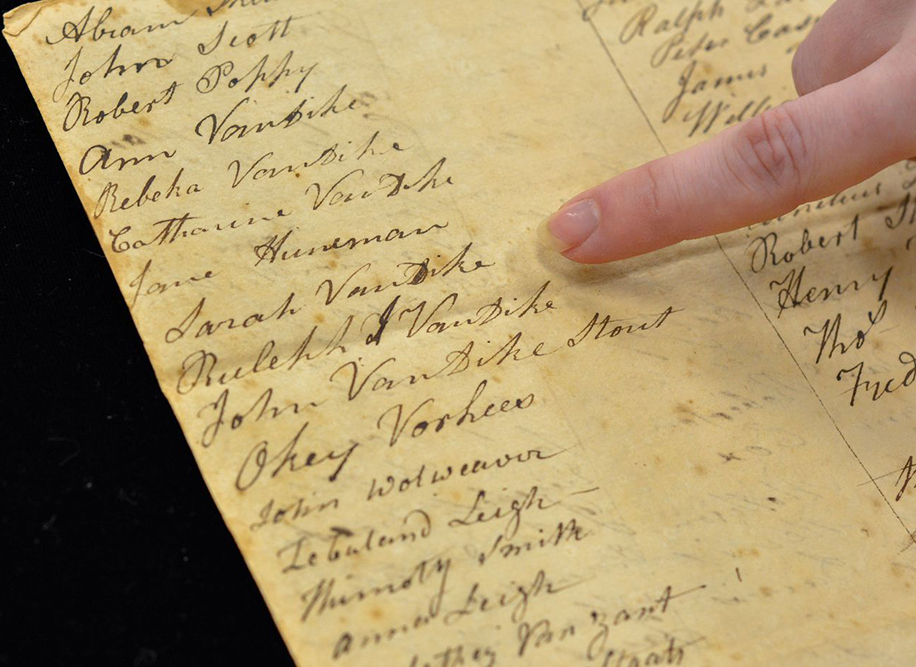 Abram
John Scott
Robert Poppy
Ann VanDike
Rebeka VanDike
Catharine VanDike
Jane Huneman
Sarah VanDike
Rulephh J VanDike
John VanDike Stout
Okey Vorhees
John Wolweaver
Leigh
Thimoty Smith
Anna Leigh
Van zant
Staats
Ralph
Peter
James
Robert
Henry
Thos
Fred